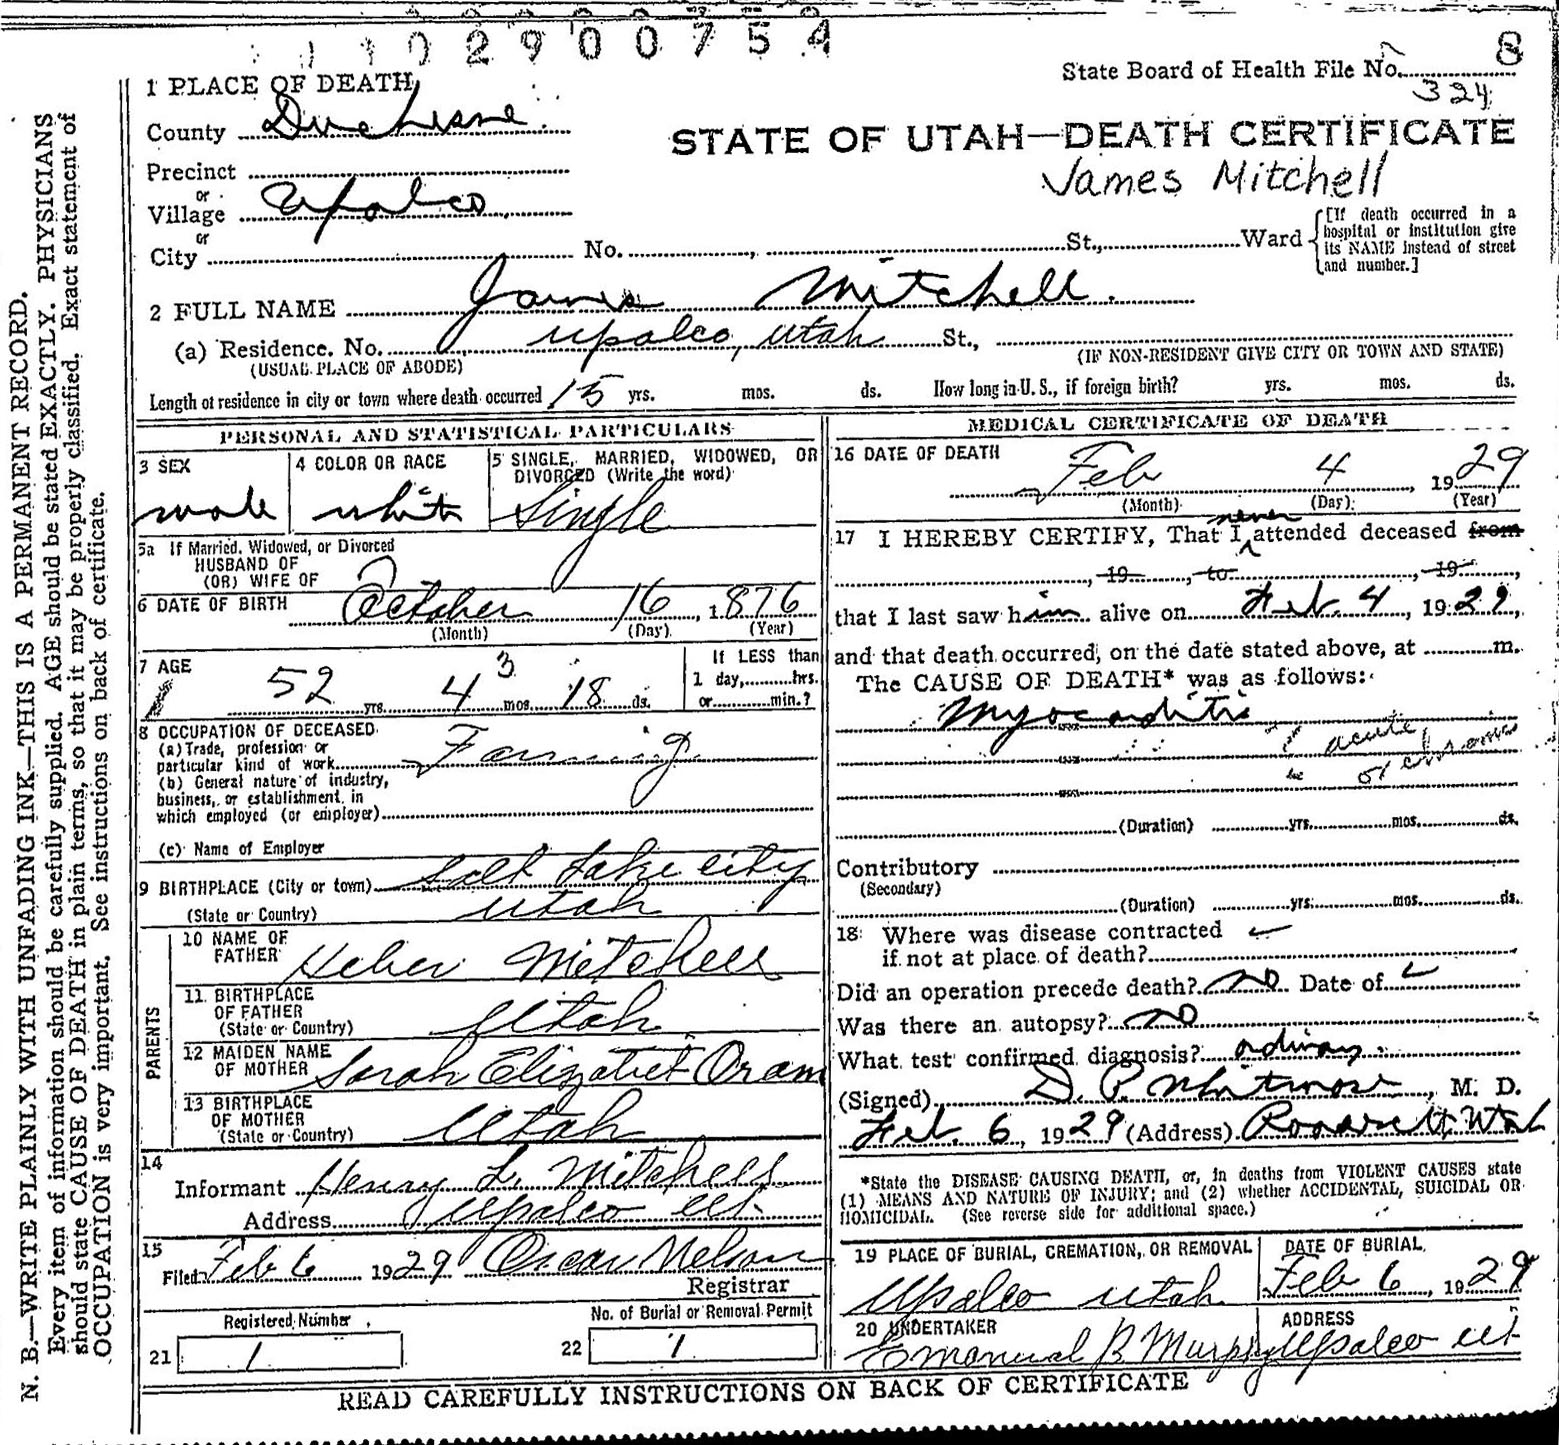 1 1 0 2 9 0 0 7 5 4
State Board of Health File No. 8
324
1 PLACE OF DEATH
County Duchesne
STATE OF UTAH—DEATH CERTIFICATE
James Mitchell
Precinct
or
Village Upalco
or
City No. St., Ward
[If death occurred in a hospital or institution give its NAME instead of street and number.]
2 FULL NAME James Mitchell.
(a) Residence. No. Upalco, Utah St.,
(USUAL PLACE OF ABODE) (IF NON-RESIDENT GIVE CITY OR TOWN AND STATE)
Length of residence in city or town where death occurred 15 yrs. mos. ds. How long in U. S., if foreign birth? yrs. mos. ds.
PERSONAL AND STATISTICAL PARTICULARS
3 SEX male
4 COLOR OR RACE white
5 SINGLE, MARRIED, WIDOWED, OR DIVORCED (Write the word)
Single
5a If Married, Widowed, or Divorced
HUSBAND OF
(OR) WIFE OF
6 DATE OF BIRTH October 16, 1876
(Month) (Day) (Year)
7 AGE 52 yrs. 4 3 mos. 18 ds.
If LESS than
1 day, hrs.
or min.?
8 OCCUPATION OF DECEASED
(a) Trade, profession or
particular kind of work Farming
(b) General nature of industry,
business, or establishment in
which employed (or employer)
(c) Name of Employer
9 BIRTHPLACE (City or town) Salt Lake City
(State or Country) Utah
PARENTS
10 NAME OF
FATHER Heber Mitchell
11 BIRTHPLACE
OF FATHER
(State or Country) Utah
12 MAIDEN NAME
OF MOTHER Sarah Elizabet Oram
13 BIRTHPLACE
OF MOTHER
(State or Country) Utah
14
Informant Henry L. Mitchell
Address Upalco Ut.
15
Filed Feb 6 1929 Oscar Nelson
Registrar
Registered Number
21 1
No. of Burial or Removal Permit
22 1
MEDICAL CERTIFICATE OF DEATH
16 DATE OF DEATH
Feb 4, 1929
(Month) (Day) (Year)
17 I HEREBY CERTIFY, That I never attended deceased from
, 19 , to , 19 ,
that I last saw him alive on Feb. 4, 1929,
and that death occurred, on the date stated above, at m.
The CAUSE OF DEATH* was as follows:
Myocarditis
? acute
or chronic
(Duration) yrs. mos. ds.
Contributory
(Secondary)
(Duration) yrs. mos. ds.
18 Where was disease contracted
if not at place of death?
Did an operation precede death? no Date of
Was there an autopsy? no
What test confirmed diagnosis? ordinary
(Signed) D. P. Whitmore, M. D.
Feb. 6, 1929 (Address) Roosevelt, Utah
*State the DISEASE CAUSING DEATH, or, in deaths from VIOLENT CAUSES state
(1) MEANS AND NATURE OF INJURY; and (2) whether ACCIDENTAL, SUICIDAL OR
HOMICIDAL. (See reverse side for additional space.)
19 PLACE OF BURIAL, CREMATION, OR REMOVAL
Upalco Utah
DATE OF BURIAL
Feb 6, 1929
20 UNDERTAKER
Emanuel B Murphy
ADDRESS
Upalco Ut
READ CAREFULLY INSTRUCTIONS ON BACK OF CERTIFICATE
N. B.—WRITE PLAINLY WITH UNFADING INK—THIS IS A PERMANENT RECORD.
Every item of information should be carefully supplied. AGE should be stated EXACTLY. PHYSICIANS
should state CAUSE OF DEATH in plain terms, so that it may be properly classified. Exact statement of
OCCUPATION is very important. See instructions on back of certificate.